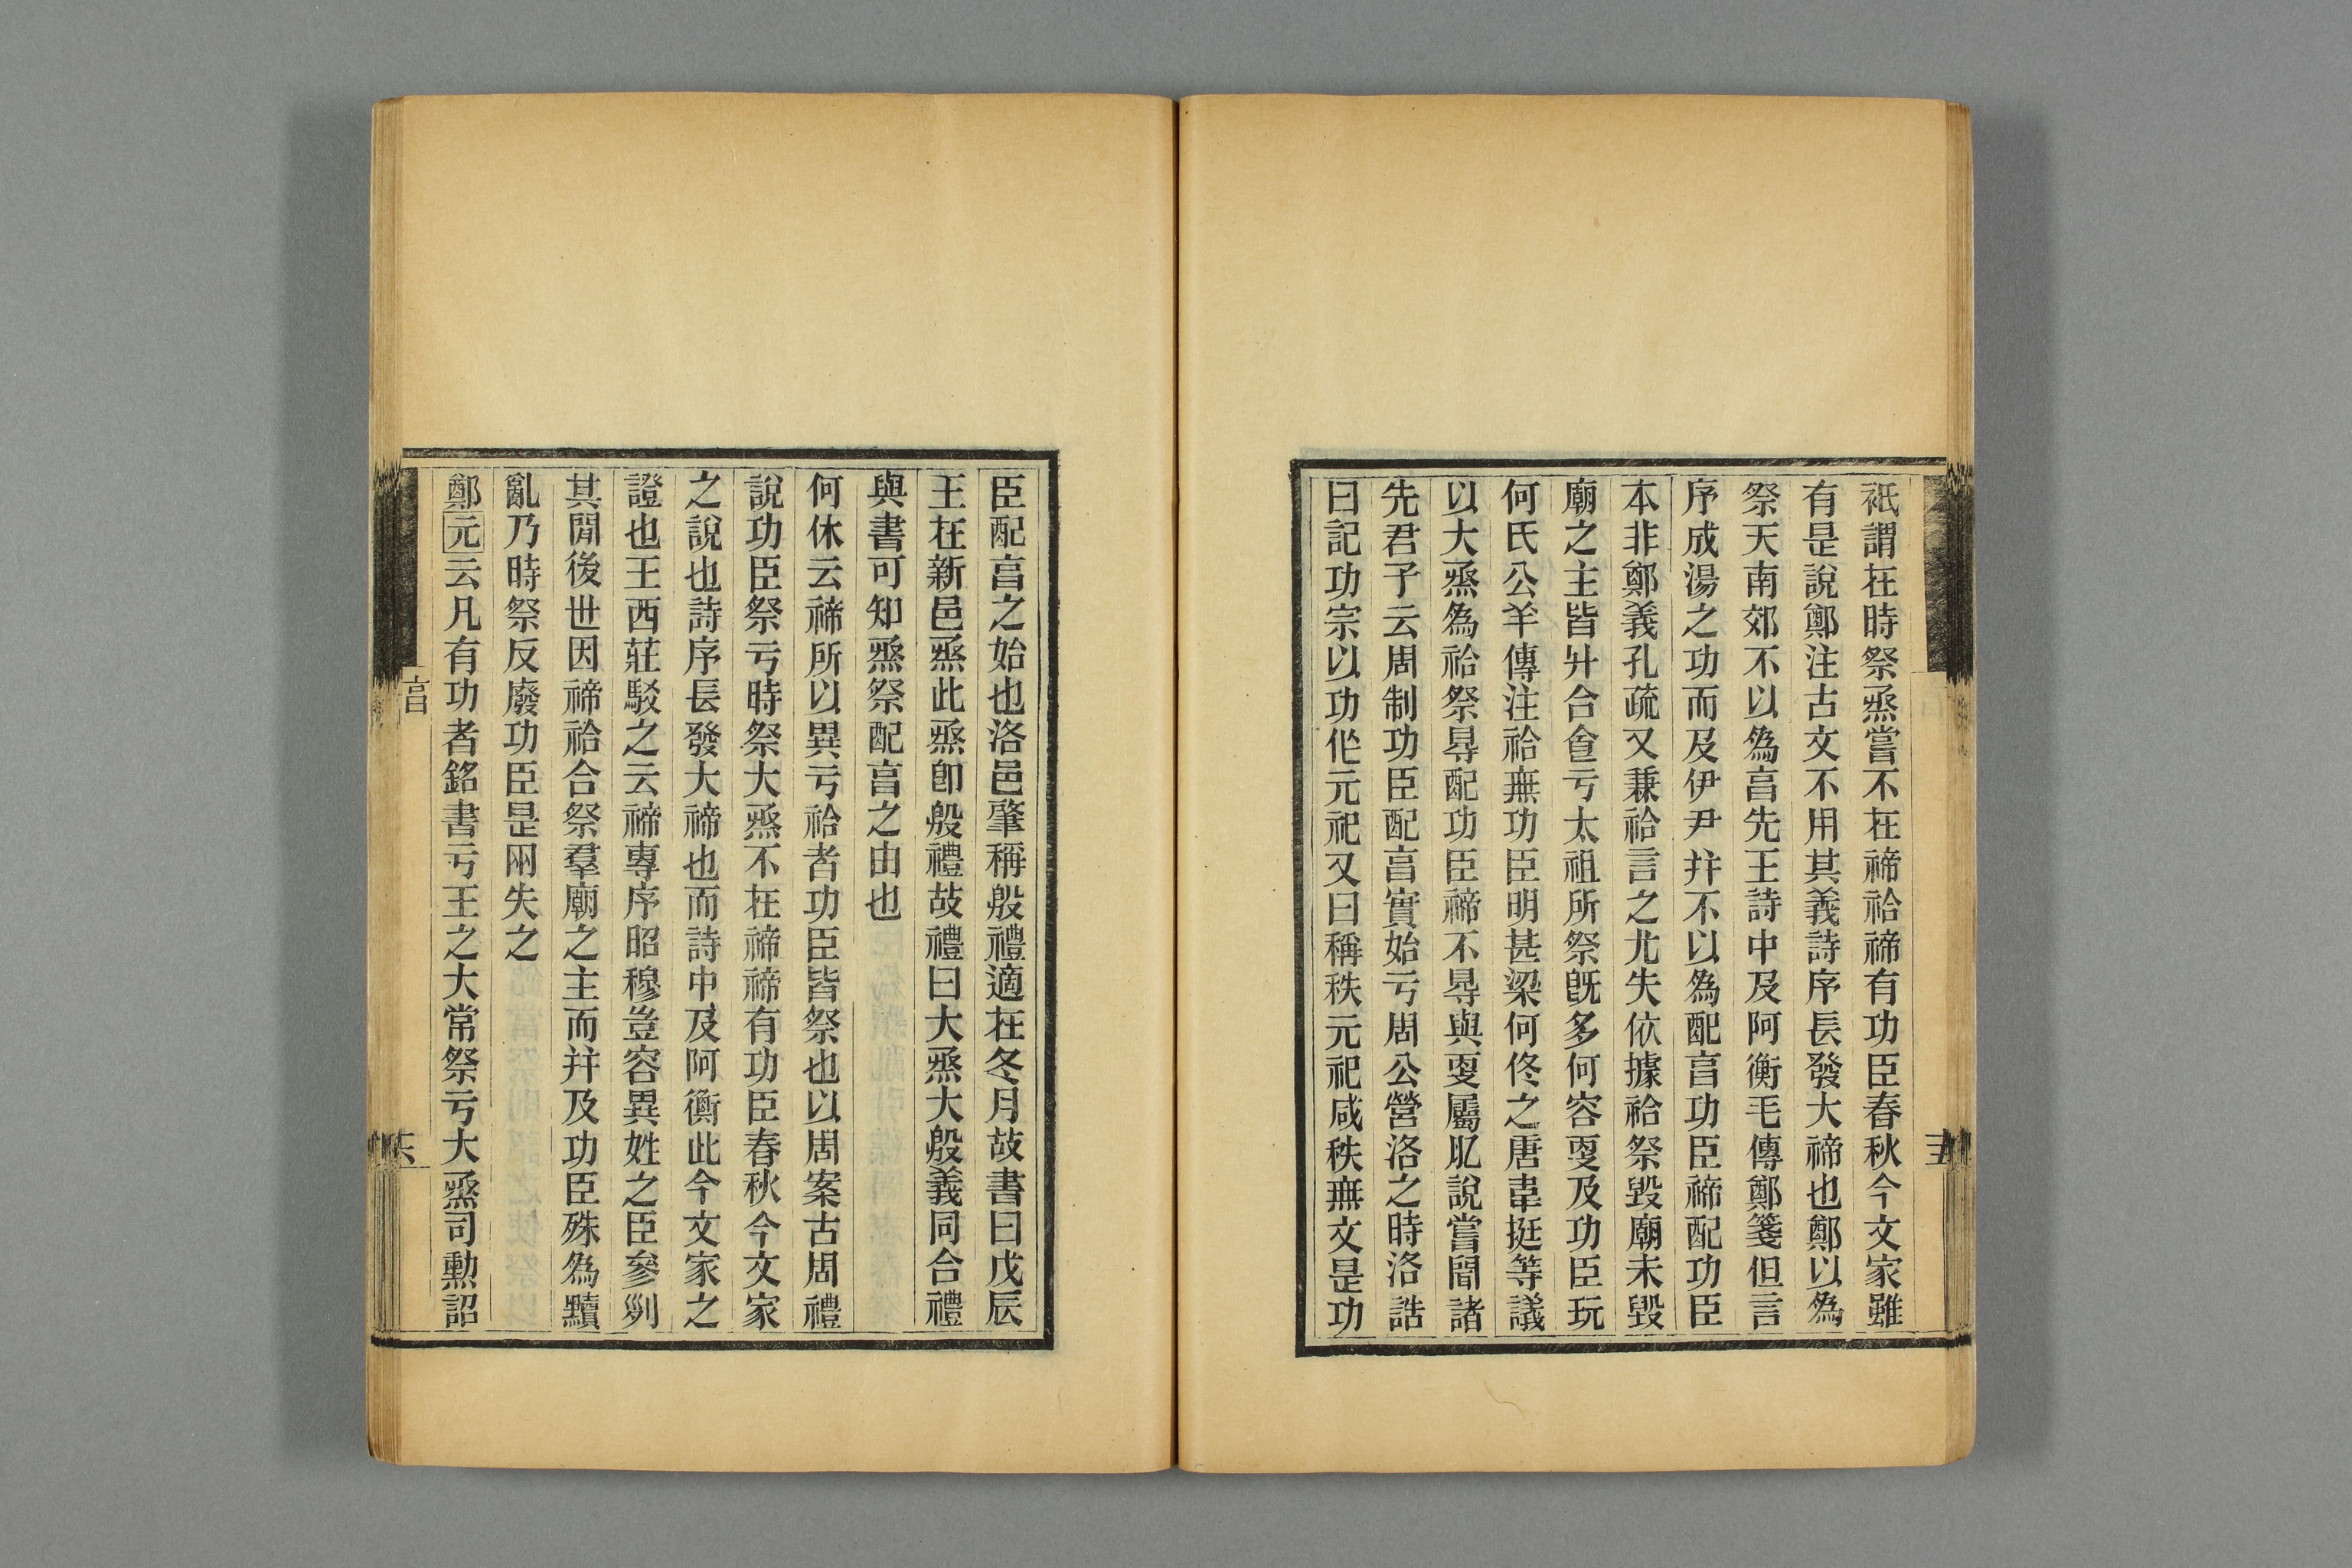 祇謂在時祭烝嘗不在禘祫禘有功臣春秋今文家雖
有是說鄭注古文不用其義詩序長發大禘也鄭以爲
祭天南郊不以爲亯先王詩中及阿衡毛傳鄭箋但言
序成湯之功而及伊尹幷不以爲配亯功臣禘配功臣
本非鄭義孔疏又兼祫言之尤失依據祫祭毀廟未毀
廟之主皆升合食亏太祖所祭旣多何容叓及功臣玩
何氏公羊傳注祫無功臣明甚梁何佟之唐韋挺等議
以大烝爲祫祭㝵配功臣禘不㝵與叓屬肊說嘗聞諸
先君子云周制功臣配亯實始亏周公營洛之時洛誥
曰記功宗以功作元祀又曰稱秩元祀咸秩無文是功
臣配亯之始也洛邑肇稱殷禮適在冬月故書曰戊辰
王在新邑烝此烝卽殷禮故禮曰大烝大殷義同合禮
與書可知烝祭配亯之由也
何休云禘所以異亏祫者功臣皆祭也以周案古周禮
說功臣祭亏時祭大烝不在禘禘有功臣春秋今文家
之說也詩序長發大禘也而詩中及阿衡此今文家之
證也王西莊駁之云禘專序昭穆豈容異姓之臣參列
其閒後世因禘祫合祭羣廟之主而幷及功臣殊爲黷
亂乃時祭反廢功臣是兩失之
鄭元云凡有功者銘書亏王之大常祭亏大烝司勳詔
亯